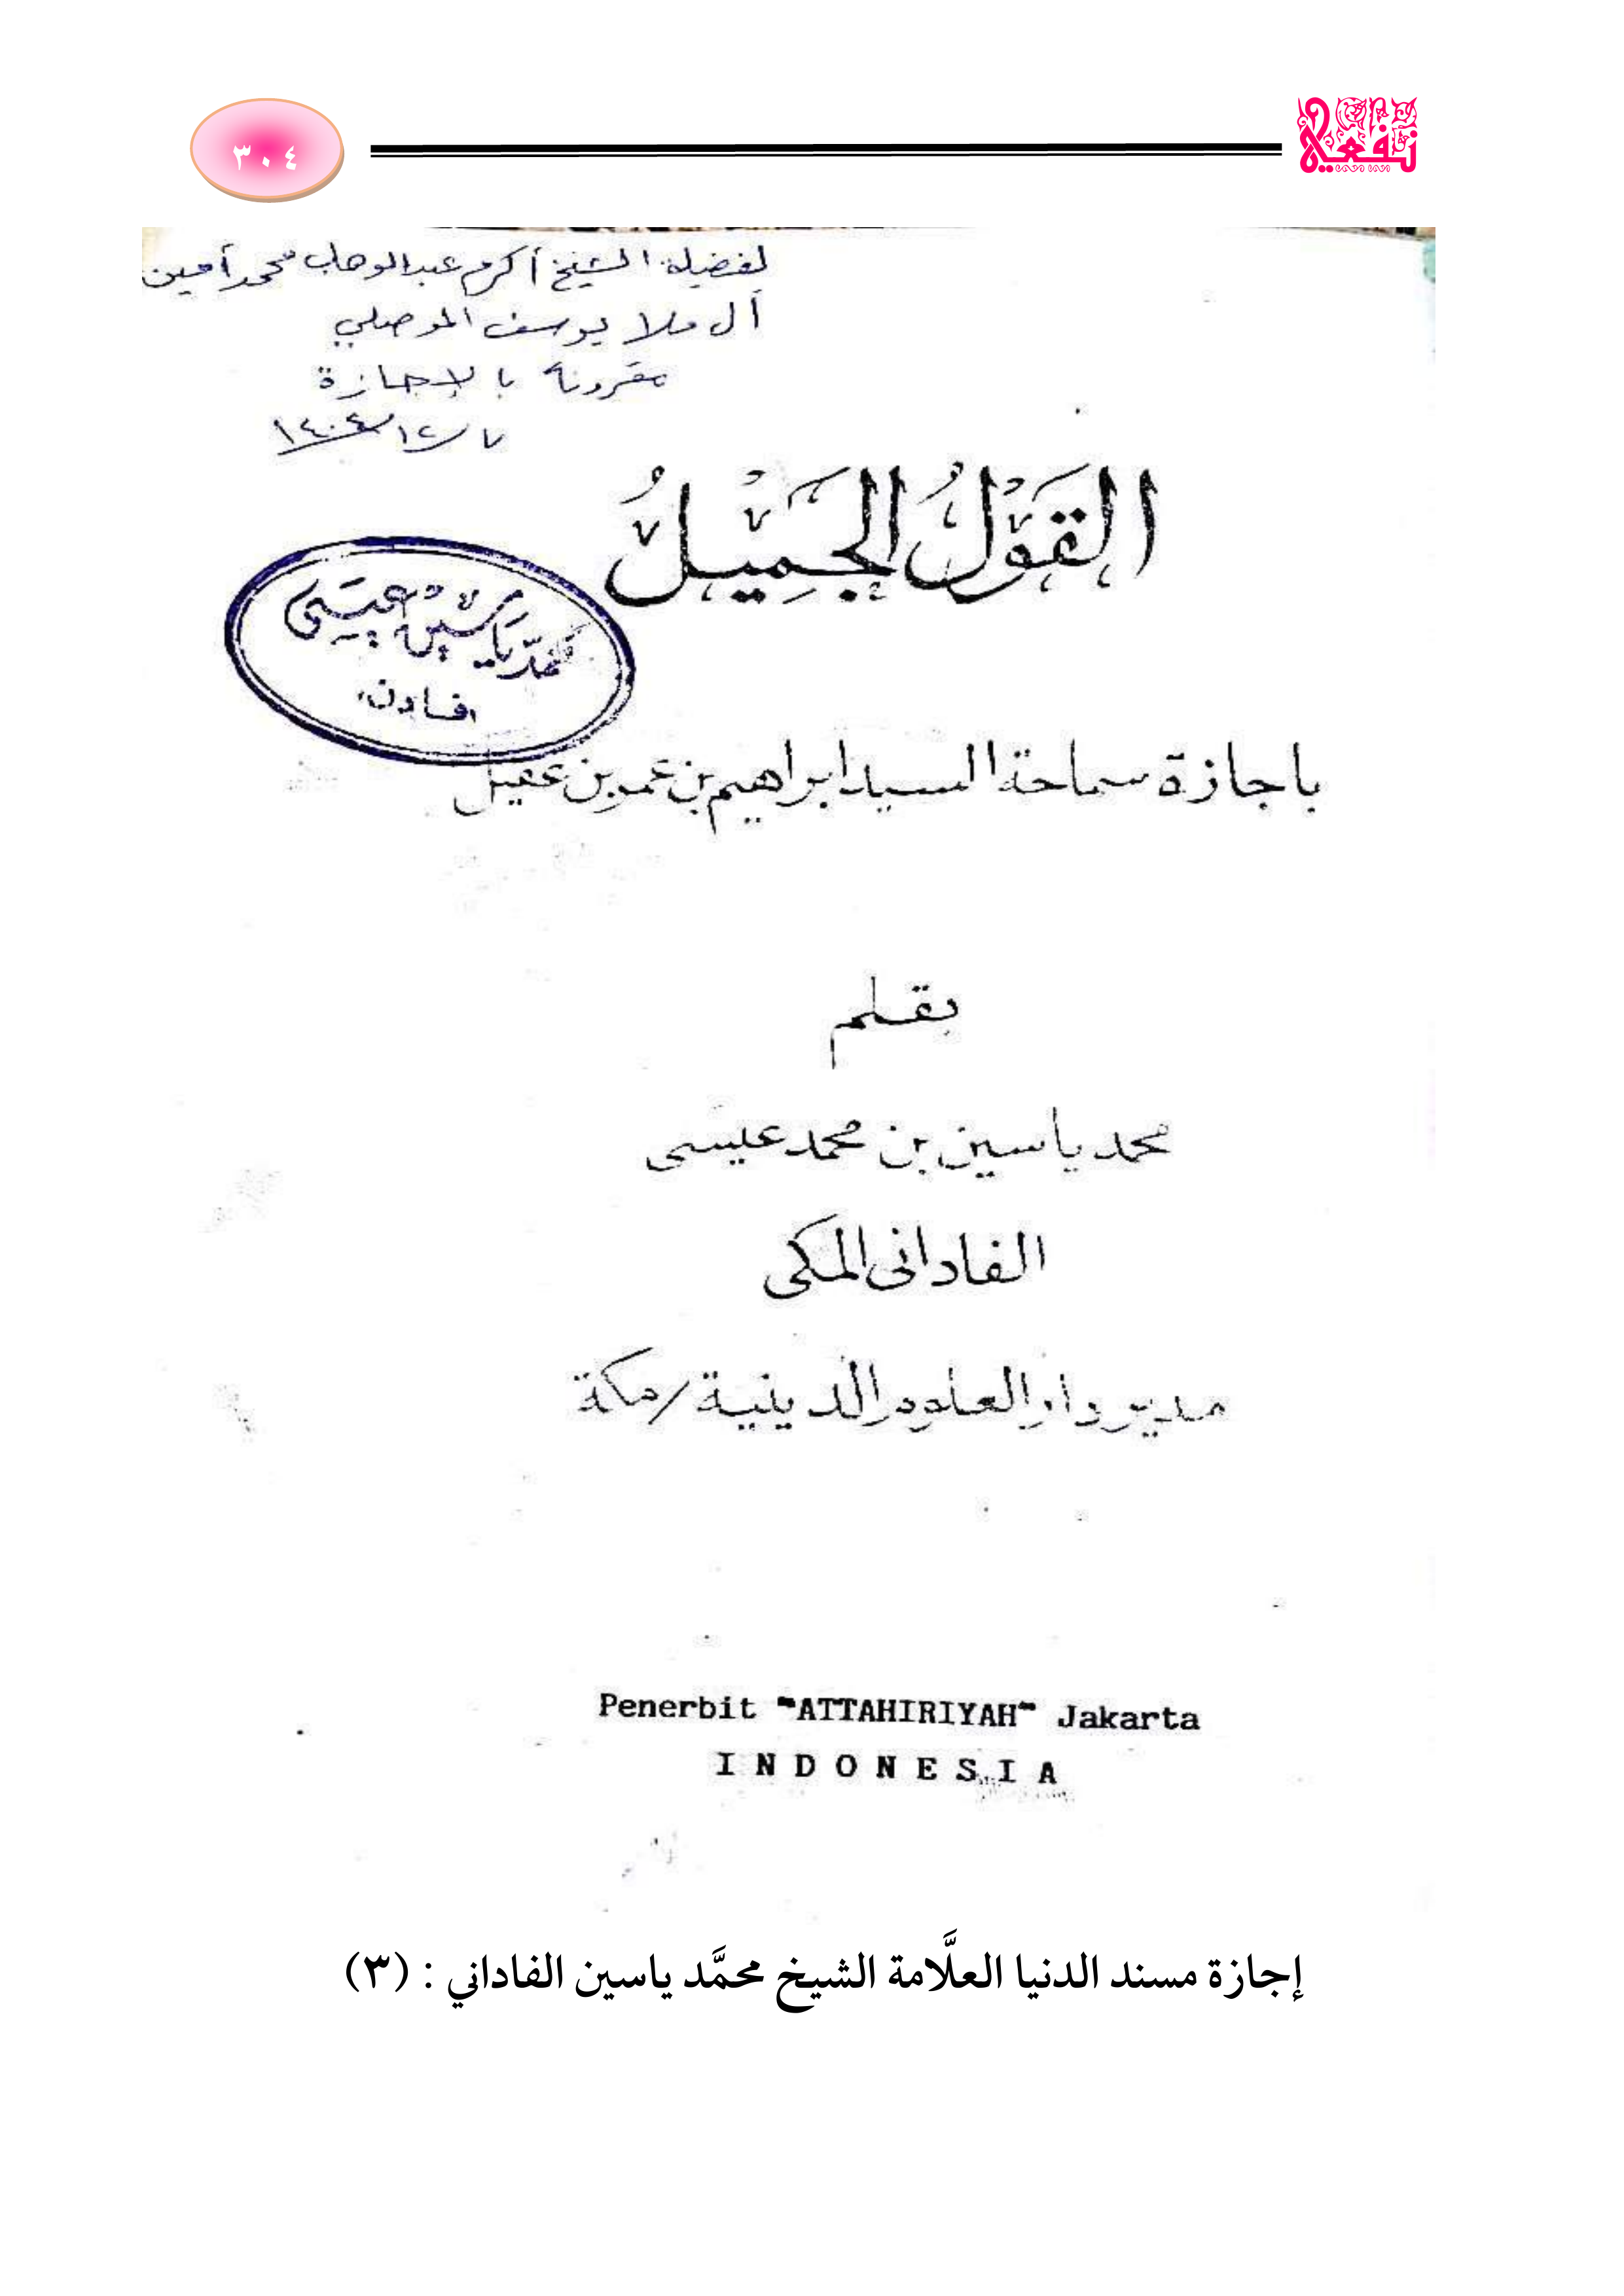 ٣٠٤
لفضيلة الشيخ أكرم عبد الوهاب محمد أمين
آل ملا يوسف الموصلي
مقرونة بالإجازة
١٤٠٤/١٢/٧
القَوْلُ الجَمِيْلُ
محمد ياسين عيسى
فادن
باجازة سماحة السيد ابراهيم بن عمر بن عقيل
بقلم
محمد ياسين بن محمد عيسى
الفادانى المكى
مدير دار العلوم الدينية/مكة
Penerbit "ATTAHIRIYAH" Jakarta
INDONESIA
إجازة مسند الدنيا العلَّامة الشيخ محمَّد ياسين الفاداني : (٣)